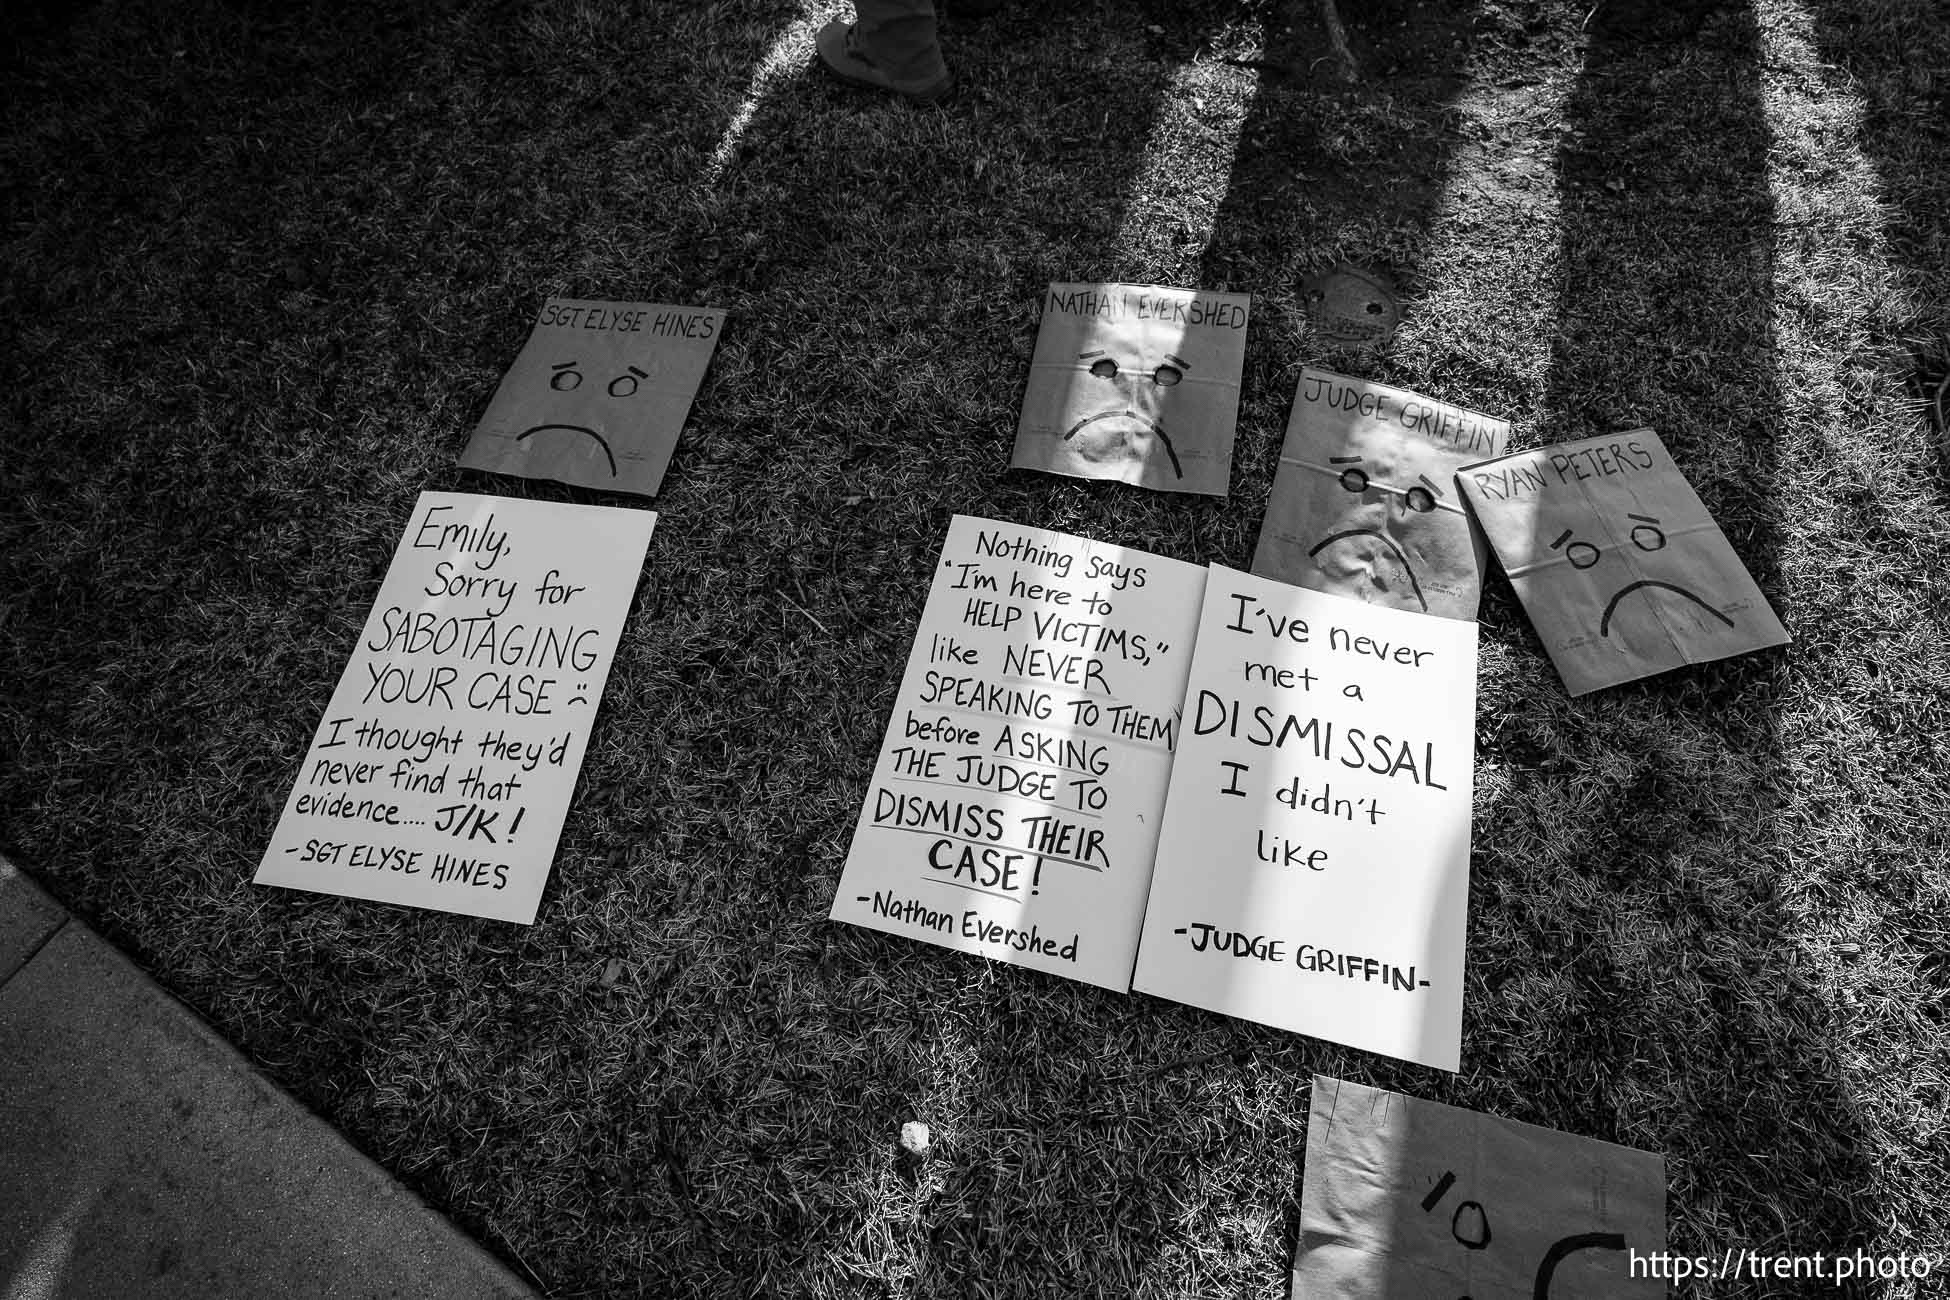 SGT ELYSE HINES
Emily,
Sorry for
SABOTAGING
YOUR CASE :(
I thought they'd
never find that
evidence.... J/K!
-SGT ELYSE HINES
NATHAN EVERSHED
Nothing says
"I'm here to
HELP VICTIMS,"
like NEVER
SPEAKING TO THEM
before ASKING
THE JUDGE TO
DISMISS THEIR
CASE!
-Nathan Evershed
JUDGE GRIFFIN
I've never
met a
DISMISSAL
I didn't
like
-JUDGE GRIFFIN-
RYAN PETERS
https://trent.photo